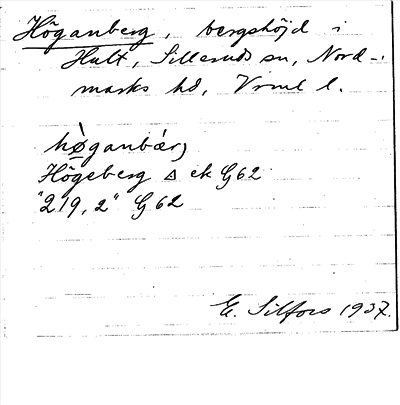 Höganberg, bergshöjd i
Hult, Silleruds sn, Nord-
marks hd, Vrml l.
hø̀ganbǽrj
Högeberg ▵ ek G62
"219,2" G62
E. Silfors 1937.